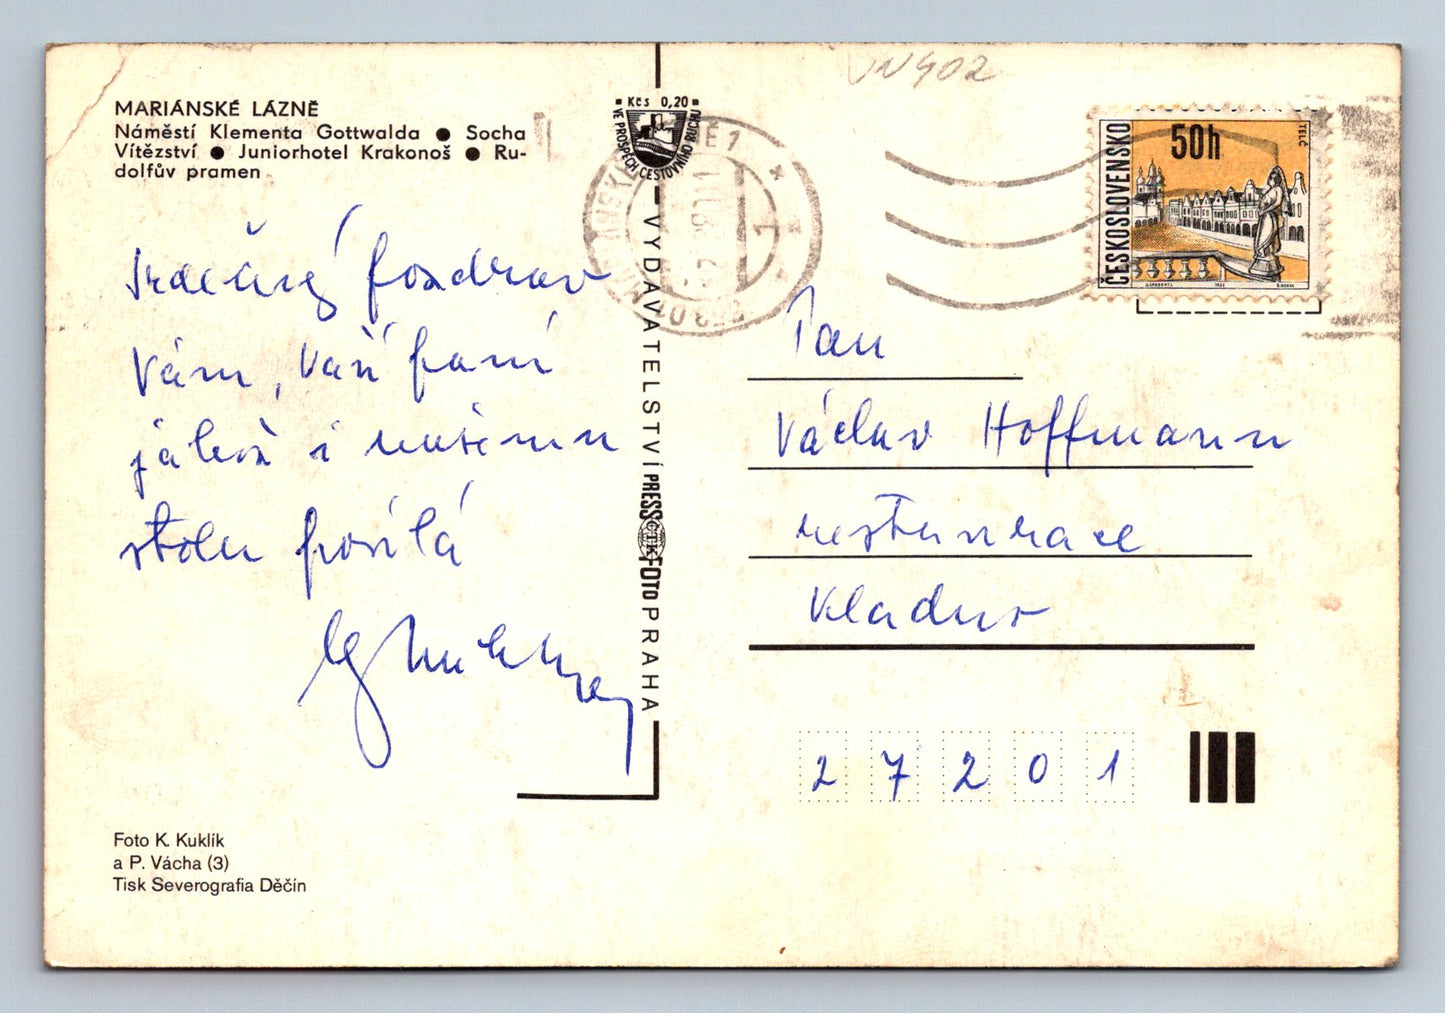 MARIÁNSKÉ LÁZNĚ
Náměstí Klementa Gottwalda ● Socha
Vítězství ● Juniorhotel Krakonoš ● Ru-
dolfův pramen
Srdečný pozdrav
Vám, Vaší paní
jakož i našemu
stolu posílá
Foto K. Kuklík
a P. Vácha (3)
Tisk Severografia Děčín
Kčs 0,20
VE PROSPĚCH CESTOVNÍHO RUCHU
VYDAVATELSTVÍ PRESSFOTO PRAHA
ČTK
VN402
ČESKOSLOVENSKO
50h
TELČ
Pan
Václav Hoffmann
restaurace
Kladno
27201